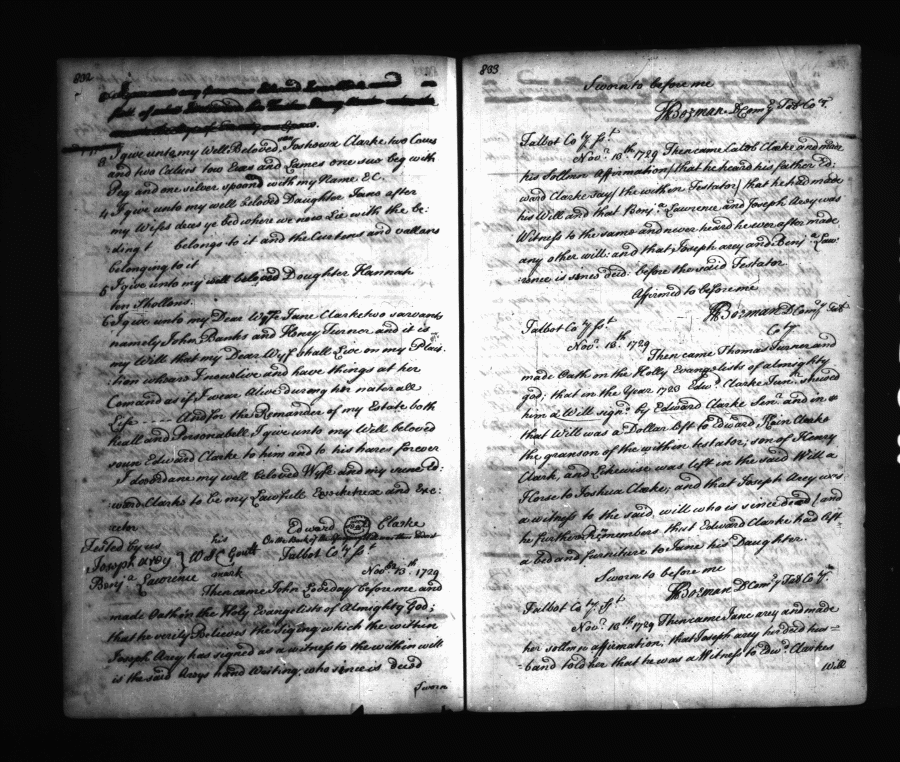 832
3 I give unto my Well Beloved son Joshowa Clarke two Cows
and two Calves two Ews and Lames one sus beg with
Peg and one silver spoond with my Name E C.
4 I give unto my well beloved Daughter Jane after
my Wifes dres ye bed where we now Lie with the be:
ding t belongs to it and the Curtans and vallans
belonging to it
5 I give unto my well beloved Doughter Hannah
ton Shollons.
6 I give unto my Dear Wyfe Jane Clarke two sarvants
namely John Banks and Henry Turner and it is
my Will that my Dear Wyf shall Live on my Plan:
tion whears I now live and have things at her
Comand as if I wear Alive during her naterall
Life - - - And for the Remander of my Estate both
Reall and Personabell I give unto my Well beloved
soun Edward Clarke to him and to his hares forever
I do ordane my well beloved Wyfe and my sun Ed:
ward Clarke to be my Lawfull Exsecketrex and Exe:
cetor
Edward Clarke
Tested by us
Joseph Arey
Benja. Lawrence
his
Will C Goult
mark
On the Back of the
Talbot Co ty Sst
Novbr. 13th. 1729
Then came John Loveday before me and
made Oath on the Holy Evangelists of Almighty God;
that he verily Believes the Signing which the within
Joseph Arey has signed as a witness to the within will
is the said Areys hand Writing, who since is decd
Sworn
833
Sworn to before me
Th Bozman D Comry Talbt Coty
Talbot Co ty Sst
Novr. 13th. 1729 Then came Caleb Clarke and made
his Sollemn Affirmation that he heard his father Ed:
ward Clarke say (the within Testator) that he had made
his Will and that Benja. Lawrence and Joseph Arey was
Witness to the same and never heard he ever after made
any other will: and that Joseph arey and Benja. Law:
rence is sines decd. before the said Testator
Affirmed to before me
Th Bozman D Comry Talbt
Coty
Talbot Co ty Sst
Novr. 13th. 1729
Then came Thomas Turner and
made Oath on the Holly Evangelists of almighty
god; that in the Year 1723 Edwd. Clarke Junr. shewed
him a Will signd. by Edward Clarke Senr. and in
that Will was a Dollar left to Edward Clarke
the granson of the within testator; son of Henry
Clark, and Likewise was left in the said Will a
Horse to Joshua Clarke; and that Joseph Arey was
a witness to the said will who is since dead / and
he further Remembers that Edward Clarke had left
a bed and furniture to Jane his Daughter.
Sworn to before me
Th Bozman D Comry Talbt Coty
Talbot Co ty. Sst
Novr. 13th. 1729 Then came Jane arey and made
her solemn affirmation, that Joseph arey her decd hus=
band told her that he was a Witness to Edwd. Clarkes
Will